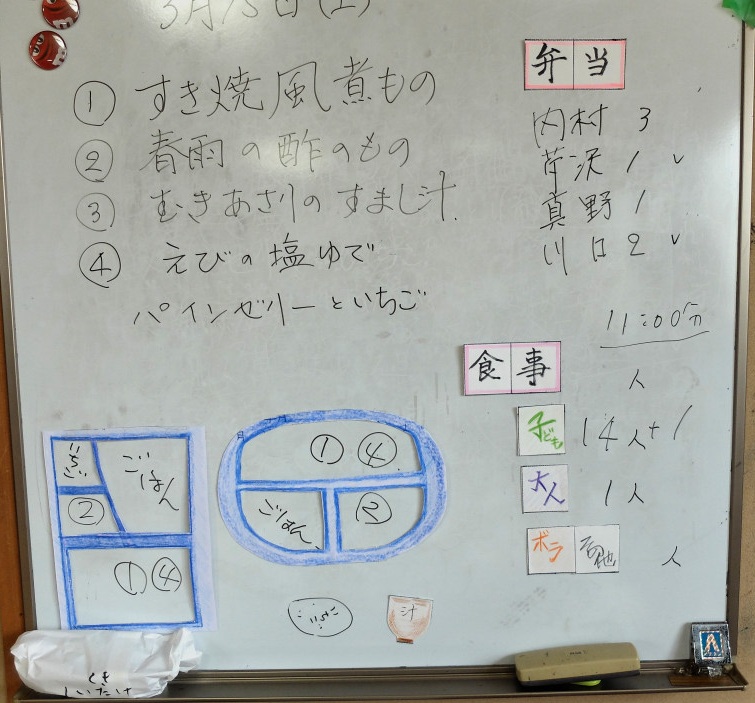 3月15日(土)
① すき焼風煮もの
② 春雨の酢のもの
③ むきあさりのすまし汁
④ えびの塩ゆで
パインゼリーといちご
弁当
内村 3
芹沢 1 ✓
真野 1
川口 2 ✓
11:00分
食事
人
子ども 14人+1
大人 1人
ボラ その他 人
いちご ごはん
②
①④
①④
ごはん ②
いちご
汁
くき
しいたけ